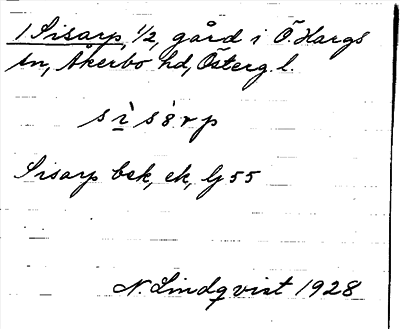 1 Sisarp, 1/2, gård i Ö. Hargs
sn, Åkerbo hd, Österg. l.
Sisarp bsk, ek, lj 55
N. Lindqvist 1928